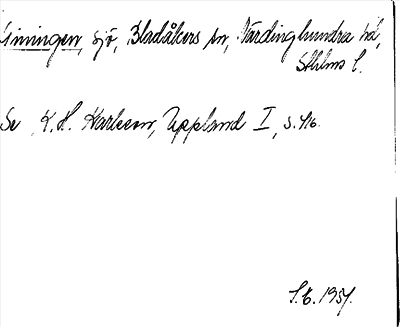 sjö, Bladåkers sn, Närdinghundra hd,
Sthlms l.
Se K.H. Karlsson, Uppland I, s. 46.
S.E. 1957.